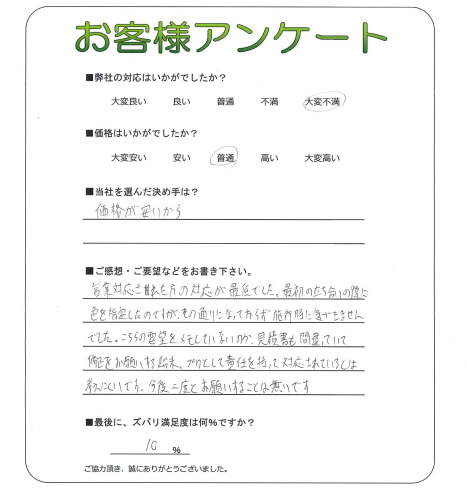 お客様アンケート
■弊社の対応はいかがでしたか？
大変良い 良い 普通 不満 大変不満
■価格はいかがでしたか？
大変安い 安い 普通 高い 大変高い
■当社を選んだ決め手は？
価格が安いから
■ご感想・ご要望などをお書き下さい。
営業対応された方の対応が最低でした。最初の立ち合いの際に
色を指定したのですが、その通りになっておらず施行時に気づきません
でした。こちらの要望をメモしていないのか、見積書も間違っていて
修正をお願いする始末、プロとして責任を持って対応されているとは
考えにくいです。今後二度とお願いすることは無いです
■最後に、ズバリ満足度は何%ですか？
10 %
ご協力頂き、誠にありがとうございました。